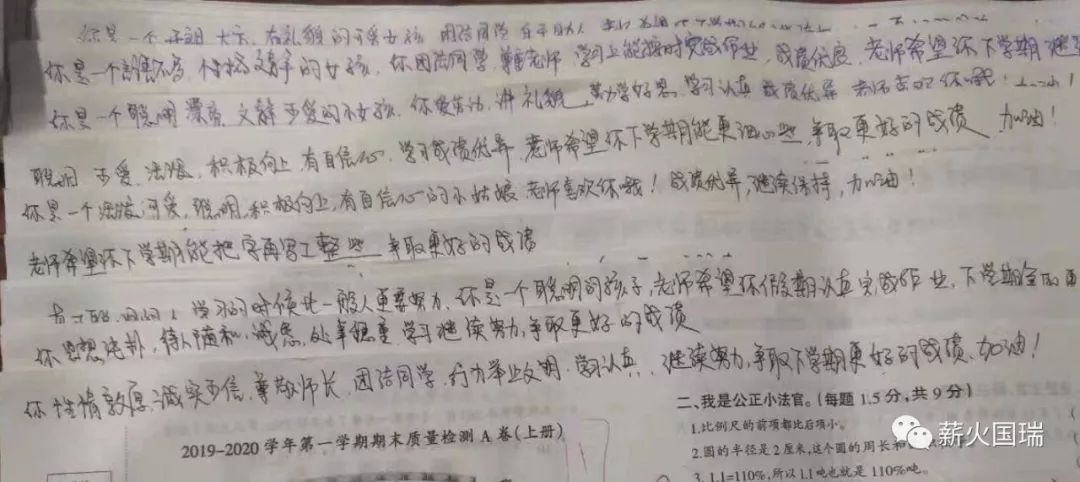 你是一个 大方、有礼貌的可爱女孩 团结同学
你是一个言语不多,性格文静的女孩,你团结同学,尊重老师,学习上能按时完成作业,成绩优良,老师希望你下学期继
你是一个聪明漂亮 文静可爱的小女孩,你爱劳动,讲礼貌,勤学好思,学习认真 成绩优异 老师喜欢你哦!
聪明 可爱、活泼,积极向上,有自信心,学习成绩优异,老师希望你下学期能更细心些,争取更好的成绩 加油!
你是一个活泼可爱,聪明,积极向上,有自信心的小姑娘,老师喜欢你哦!成绩优异,继续保持,加油!
老师希望你下学期能把字再写工整些 争取更好的成绩
学习的时候比一般人更要努力,你是一个聪明的孩子,老师希望你假期认真完成作业,下学期
你思想纯朴,待人随和、诚恳,处事稳重 学习继续努力,争取更好的成绩
你性情敦厚,诚实守信,尊敬师长,团结同学,行为举止文明,学习认真,继续努力,争取下学期更好的成绩、加油!
2019-2020学年第一学期期末质量检测A卷(上册)
二、我是公正小法官。(每题1.5分,共9分)
1.比例尺的前项都比后项小。
2.圆的半径是2厘米,这个圆的周长和
3. 1.1=110%,所以1.1吨也就是110%吨。
薪火国瑞